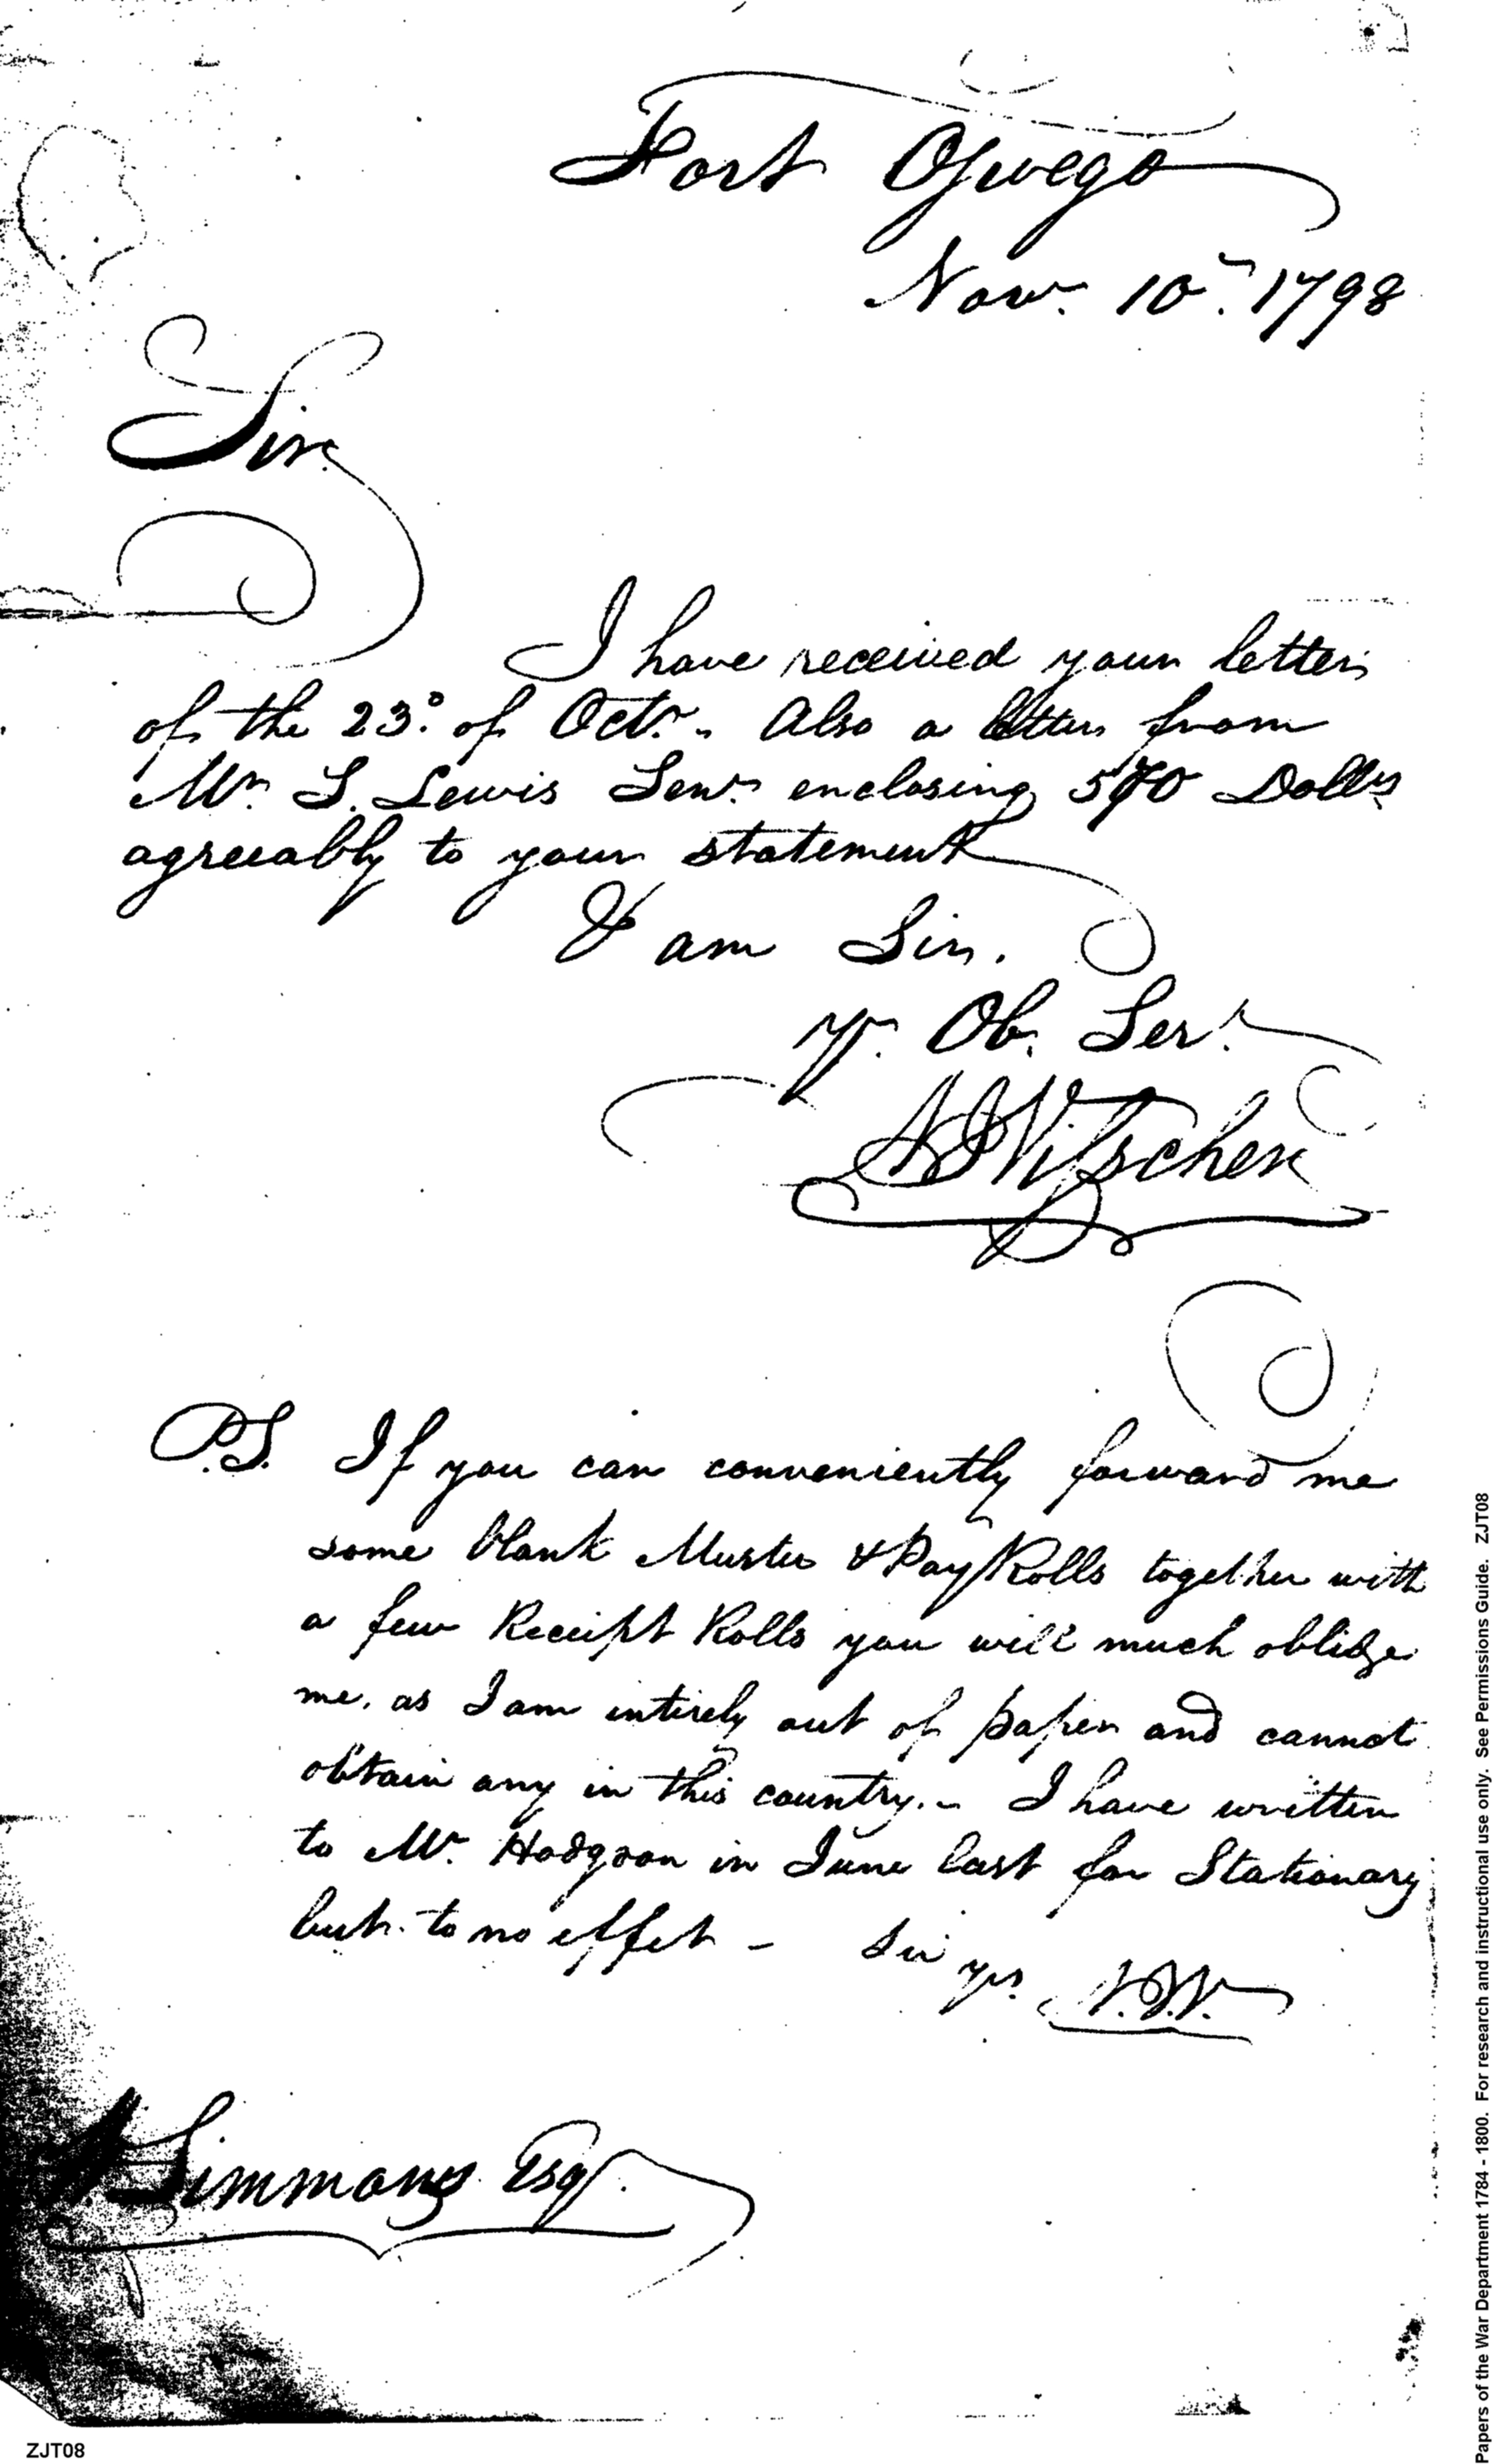 Fort Oswego
Nov.r 10.th 1798
Sir.
I have received your letter
of the 23.d of Oct.r. Also a letter from
Mr. S. Lewis Sen.r enclosing 570 Doll.s
agreeably to your statement
I am Sir.
Yr. Ob. Ser.t
P.S. If you can conveniently forward me
some blank Muster & Pay Rolls together with
a few Receipt Rolls you will much oblidge
me, as I am intirely out of paper and cannot
obtain any in this country. - I have written
to Mr. Hodgson in June last for Stationary
but to no effet - Sir yrs.
Simmons Esq.
ZJT08
Papers of the War Department 1784 - 1800. For research and instructional use only. See Permissions Guide. ZJT08